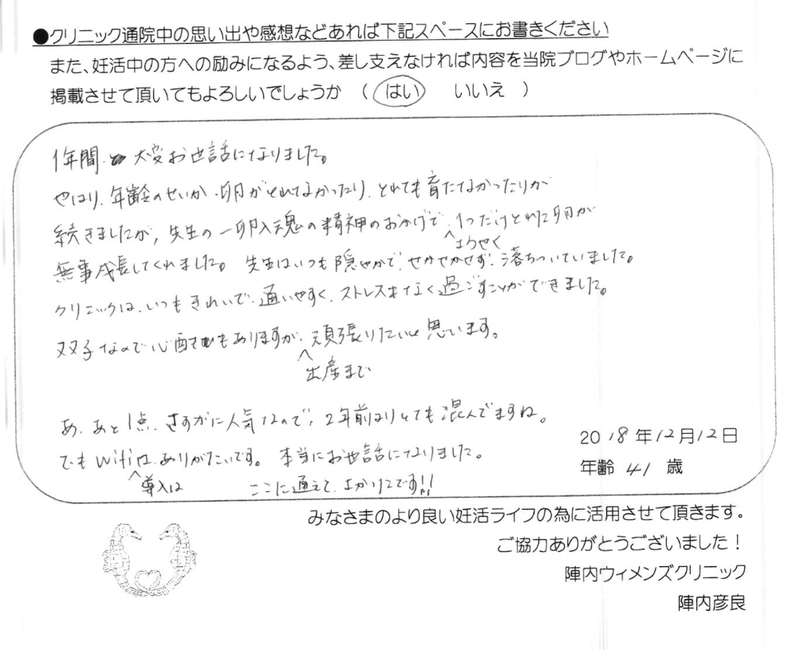 ●クリニック通院中の思い出や感想などあれば下記スペースにお書きください
また、妊活中の方への励みになるよう、差し支えなければ内容を当院ブログやホームページに
掲載させて頂いてもよろしいでしょうか （ はい いいえ ）
1年間、大変お世話になりました。
やはり、年齢のせいか、卵がとれなかったり、とれても育たなかったりが
続きましたが、先生の一卵入魂の精神のおかげで、1つだけとれた卵が
ようやく
無事成長してくれました。先生はいつも隠やかで、せかせかせず、落ちついていました。
クリニックは、いつもきれいで、通いやすく、ストレスもなく過ごすことができました。
双子なので心配もありますが、頑張りたいと思います。
出産まで
あ、あと1点、さすがに人気なので、2年前よりとても混んでますね。
でもWifiは、ありがたいです。本当にお世話になりました。
導入は
ここに通えて、よかったです!!
2018年12月12日
年齢 41 歳
みなさまのより良い妊活ライフの為に活用させて頂きます。
ご協力ありがとうございました！
陣内ウィメンズクリニック
陣内彦良